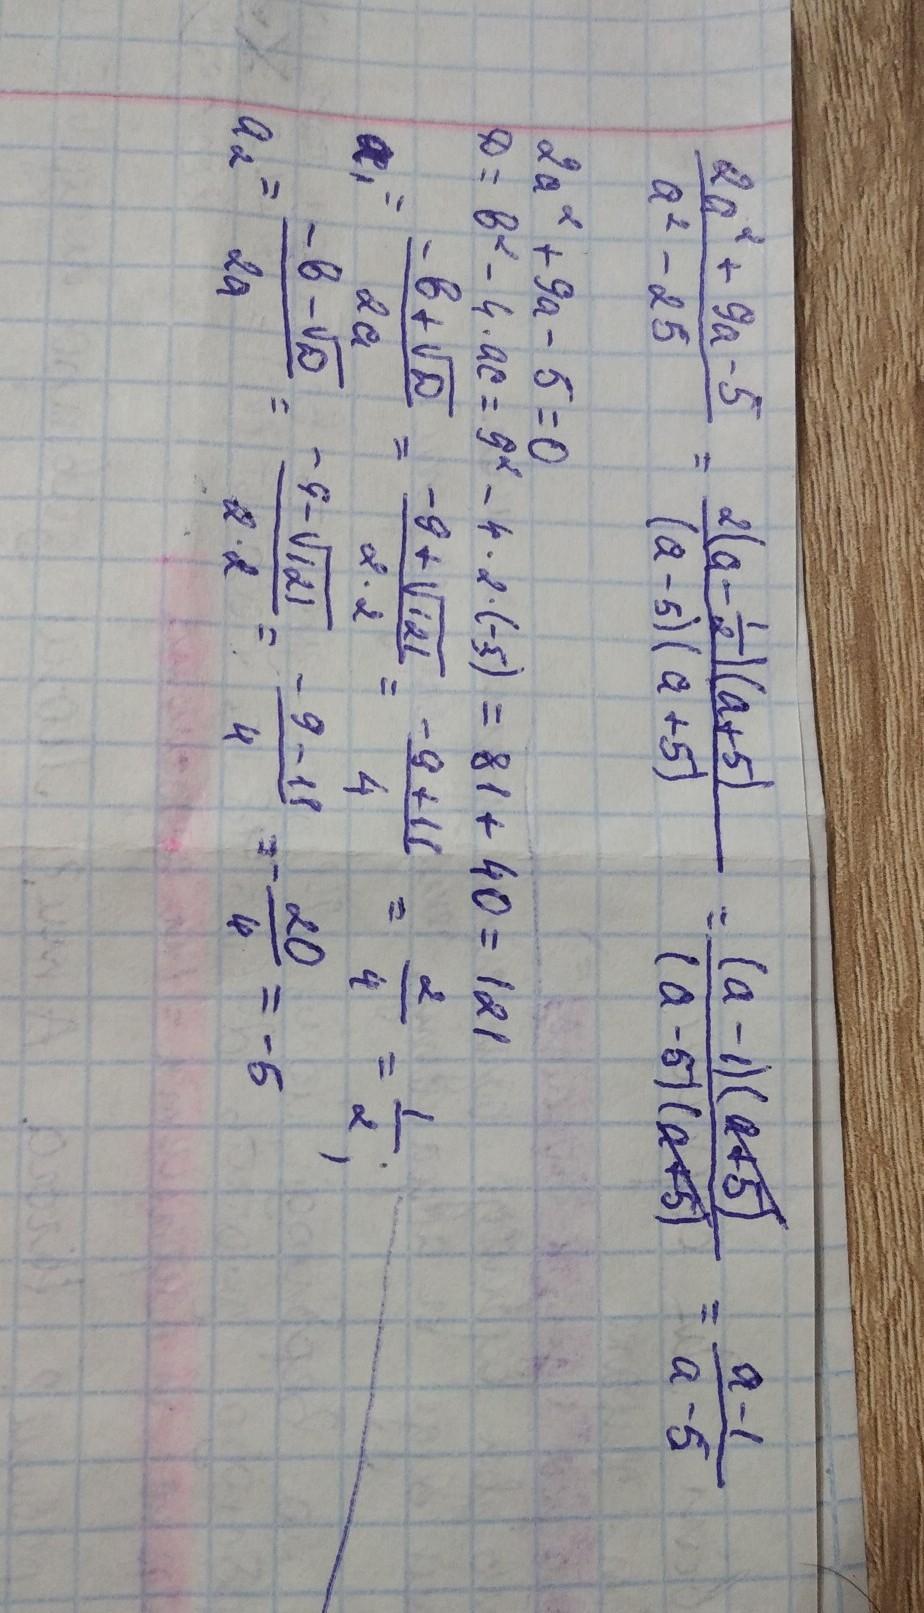 (2a² + 9a - 5)/(a² - 25) = (2(a - 1/2)(a + 5))/((a - 5)(a + 5)) = ((a - 1)(a + 5))/((a - 5)(a + 5)) = (a - 1)/(a - 5)
2a² + 9a - 5 = 0
D = b² - 4·ac = 9² - 4·2·(-5) = 81 + 40 = 121
a₁ = (-b + √D)/2a = (-9 + √121)/(2·2) = (-9 + 11)/4 = 2/4 = 1/2;
a₂ = (-b - √D)/2a = (-9 - √121)/(2·2) = (-9 - 11)/4 = -20/4 = -5